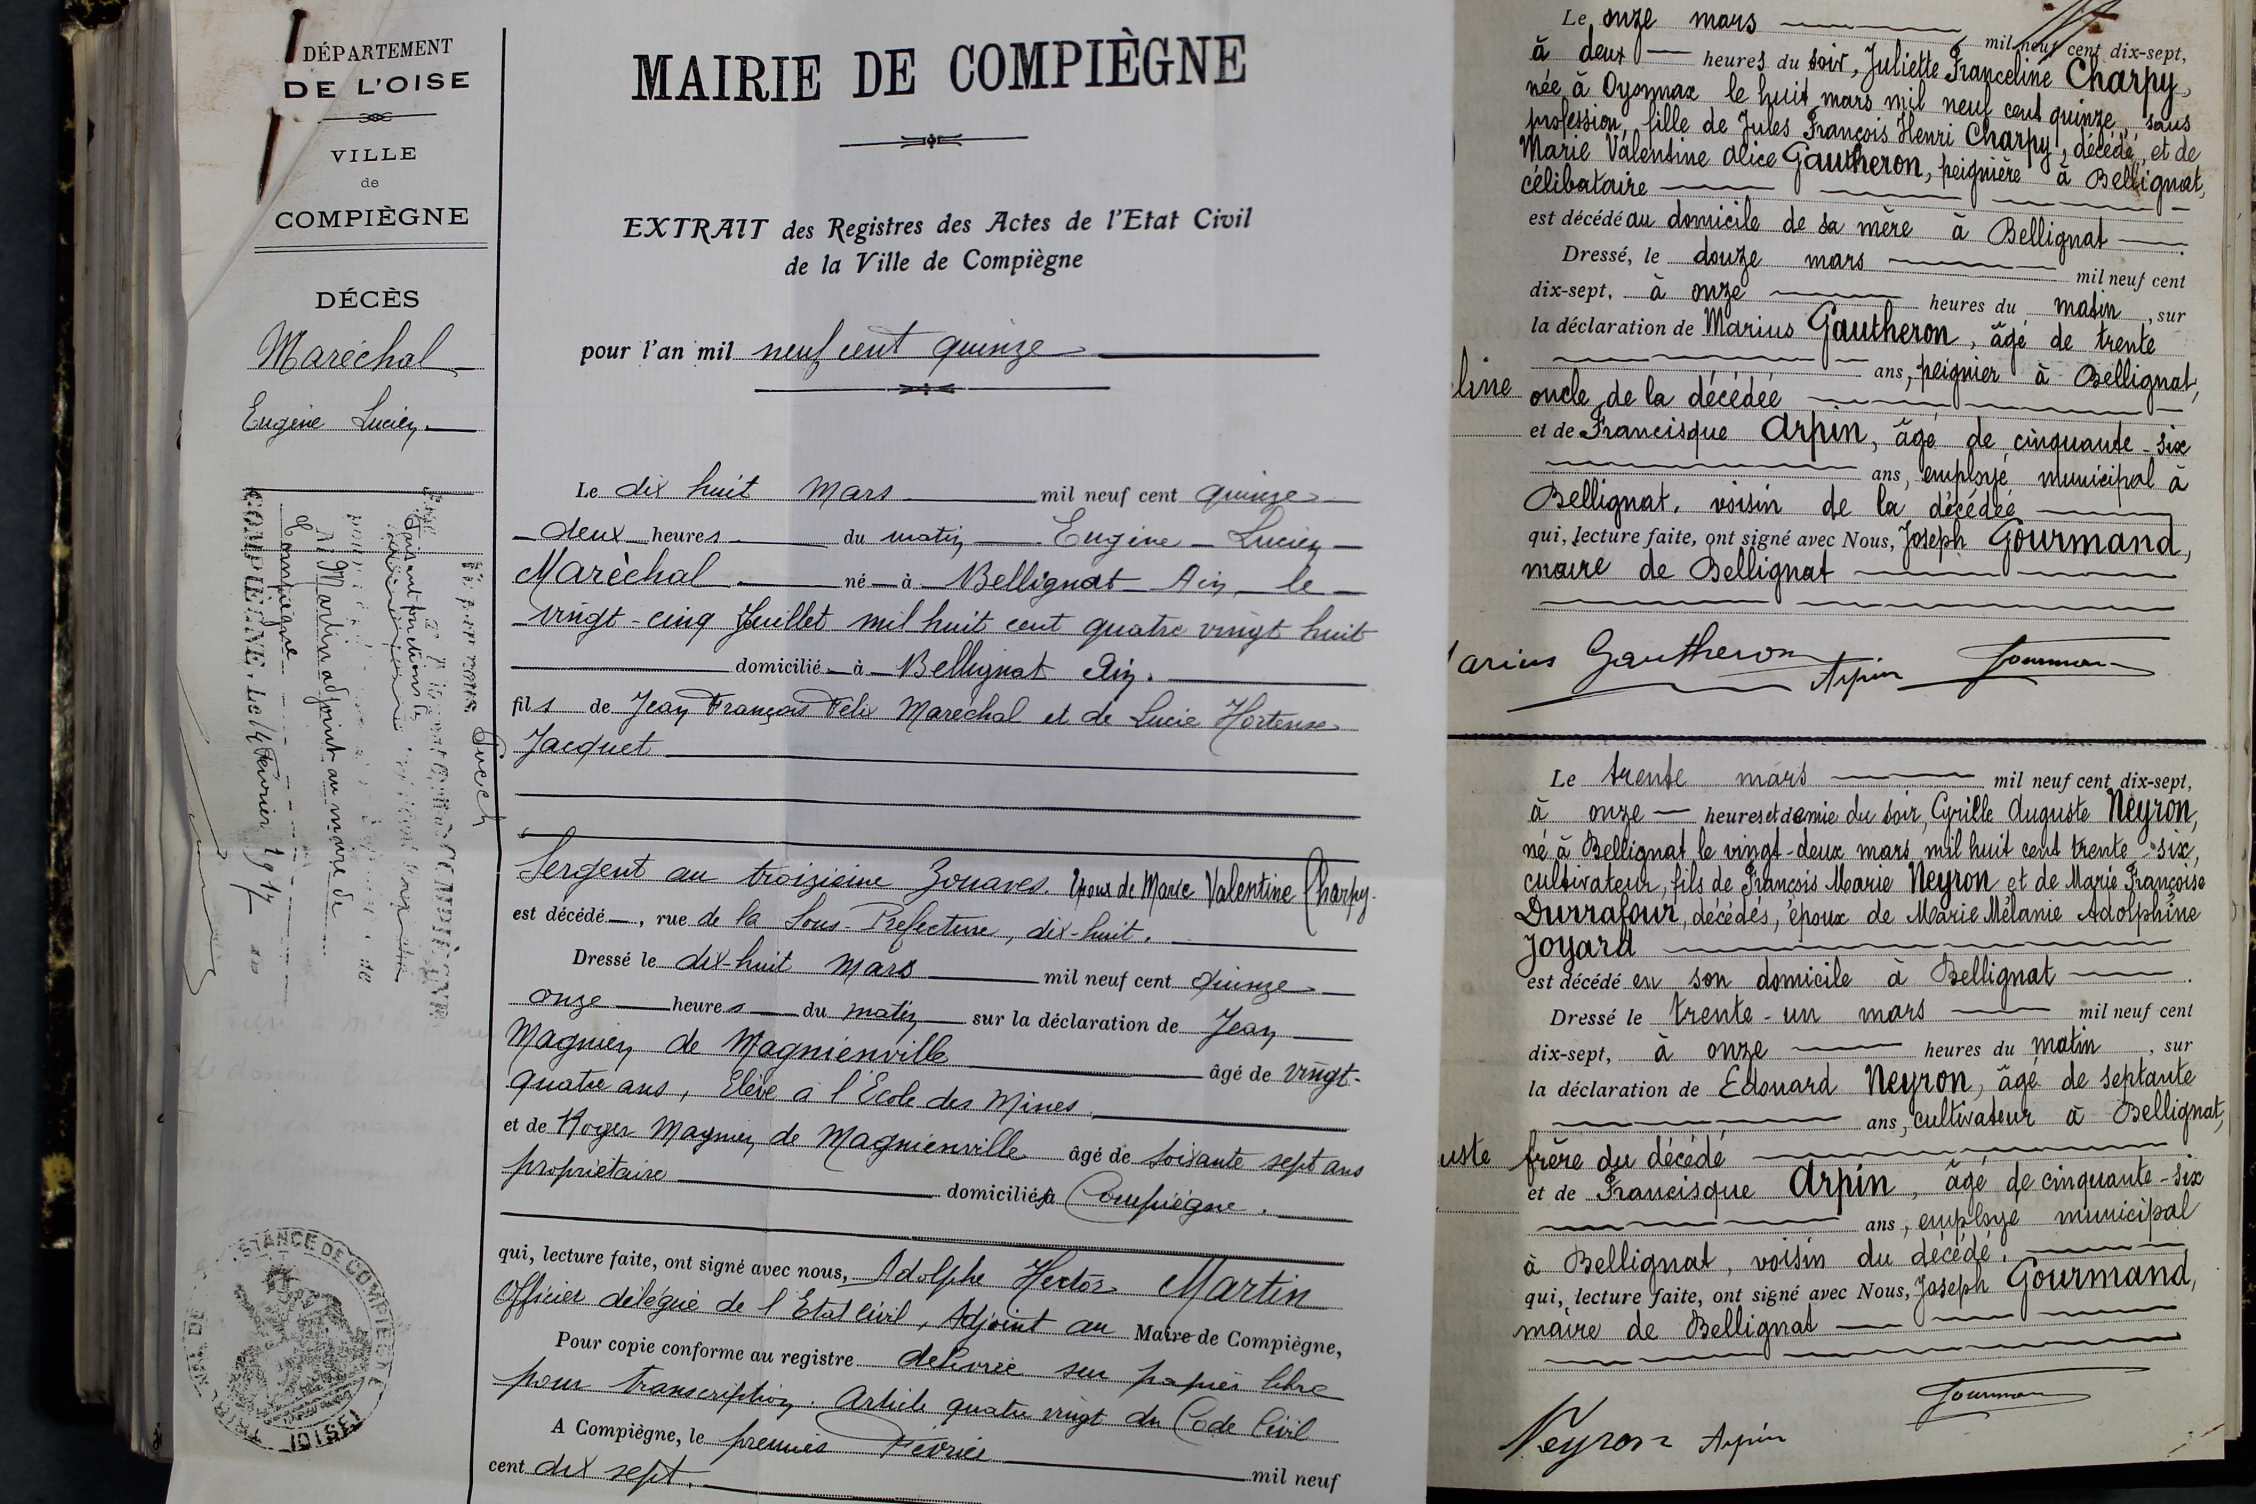 DÉPARTEMENT
DE L'OISE
VILLE
de
COMPIÈGNE
DÉCÈS
Maréchal
Eugène Lucien
Vu par nous
faisant fonctions de
Mr Martin adjoint au maire de
Compiègne
COMPIÈGNE, Le 14 Février 1917
MAIRIE DE COMPIÈGNE
EXTRAIT des Registres des Actes de l'Etat Civil
de la Ville de Compiègne
pour l'an mil neuf cent quinze
Le dix huit Mars mil neuf cent quinze
deux heures du matin Eugène Lucien
Maréchal né à Bellignat Ain le
vingt-cinq Juillet mil huit cent quatre vingt huit
domicilié à Bellignat Ain.
fils de Jean François Felix Maréchal et de Lucie Hortense
Jacquet
Sergent au troisième Zouaves. Epoux de Marie Valentine Charpy.
est décédé, rue de la Sous-Préfecture, dix-huit.
Dressé le dix-huit Mars mil neuf cent quinze
onze heures du matin sur la déclaration de Jean
Magnien de Magnienville âgé de vingt-
quatre ans, Elève à l'Ecole des Mines.
et de Roger Magnien de Magnienville âgé de soixante sept ans
propriétaire domiciliés à Compiègne.
qui, lecture faite, ont signé avec nous, Adolphe Hector Martin
Officier délégué de l'Etat Civil, Adjoint au Maire de Compiègne,
Pour copie conforme au registre délivrée sur papier libre
pour transcription. Article quatre vingt du Code Civil
A Compiègne, le premier Février mil neuf
cent dix sept.
Le onze mars mil neuf cent dix-sept,
à deux heures du soir, Juliette Franceline Charpy,
née à Oyonnax le huit mars mil neuf cent quinze, sans
profession, fille de Jules François Henri Charpy, décédé, et de
Marie Valentine Alice Gautheron, peignière à Bellignat,
célibataire
est décédé au domicile de sa mère à Bellignat
Dressé, le douze mars mil neuf cent
dix-sept, à onze heures du matin, sur
la déclaration de Marius Gautheron, âgé de trente
ans, peignier à Bellignat,
line oncle de la décédée
et de Francisque Arpin, âgé de cinquante-six
ans, employé municipal à
Bellignat, voisin de la décédée
qui, lecture faite, ont signé avec Nous, Joseph Gourmand,
maire de Bellignat
arius Gautheron Arpin Gourman
Le trente mars mil neuf cent dix-sept,
à onze heures et demie du soir, Cyrille Auguste Neyron,
né à Bellignat le vingt-deux mars mil huit cent trente-six,
cultivateur, fils de François Marie Neyron et de Marie Françoise
Durrafour, décédés, époux de Marie Mélanie Adolphine
Joyard
est décédé en son domicile à Bellignat
Dressé le trente-un mars mil neuf cent
dix-sept, à onze heures du matin, sur
la déclaration de Edouard Neyron, âgé de septante
ans, cultivateur à Bellignat,
uste frère du décédé
et de Francisque Arpin, âgé de cinquante-six
ans, employé municipal
à Bellignat, voisin du décédé.
qui, lecture faite, ont signé avec Nous, Joseph Gourmand,
maire de Bellignat
Gourman
Neyron Arpin